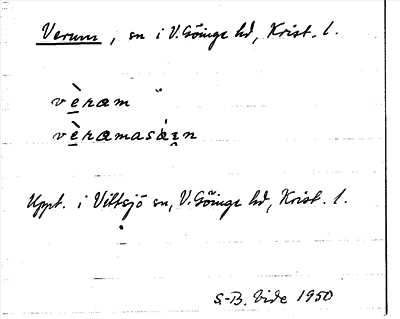 Verum, sn i V. Göinge hd, Krist. l.
vè̱ram
vè̱ramasáꞛn
Uppt. i Vittsjö sn, V. Göinge hd, Krist. l.
S-B. Vide 1950